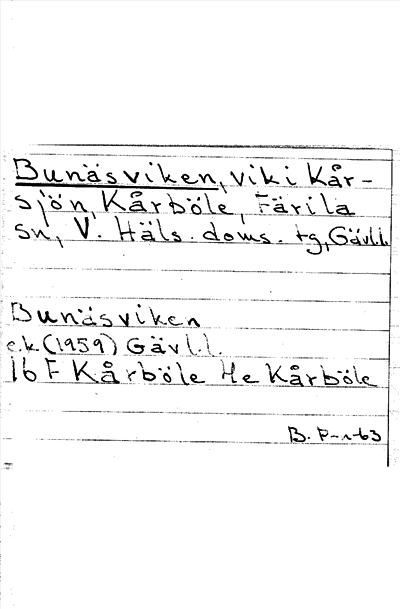 Bunäsviken, vik i Kår-
sjön, Kårböle, Färila
sn, V. Häls. doms. tg, Gävl.l.
Bunäsviken
e.k. (1959) Gävl.l.
16 F Kårböle 4e Kårböle
B. P-n-63